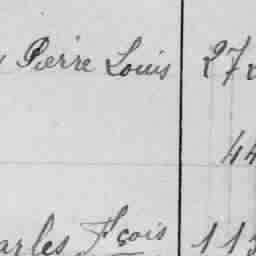 Pierre Louis 27
44
arles Fçois 113